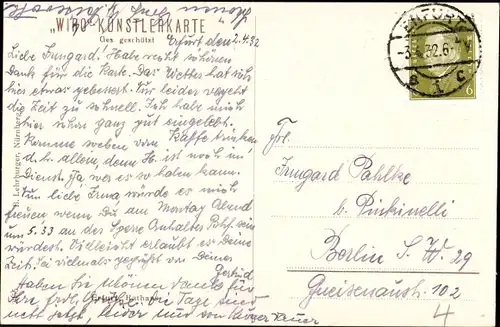 "WIRO"-KÜNSTLERKARTE
Ges. geschützt
Erfurt den 2.4.32
Liebe Irmgard! Habe recht schönen
Dank für die Karte. Das Wetter hat sich
hier etwas gebessert. Nur leider vergeht
die Zeit zu schnell. Ich habe mich
hier schon ganz gut eingelebt.
Komme soeben vom Kaffe trinken
d. h. allein, denn H. ist noch im
Dienst. Ja, wer es so haben kann.
Nun liebe Irma, würde es mich
freuen wenn Du am Montag Abend
um 5.33 an der Sperre Anhalter Bhf. sein
würdest. Vielleicht erlaubt es Deine
Zeit. Sei vielmals gegrüßt von Deiner
Gertrud
Haben Sie schönen Dank für
Ihre frdl.
nett jetzt, leider nur von kurzer Dauer
Erfurt, Rathaus
B. Lehrburger, Nürnberg
ERFURT
32.6
8 c
6
Frl.
Irmgard Pahlke
b. Pinkinelli
Berlin S. W. 29
Gneisenaustr. 102
4